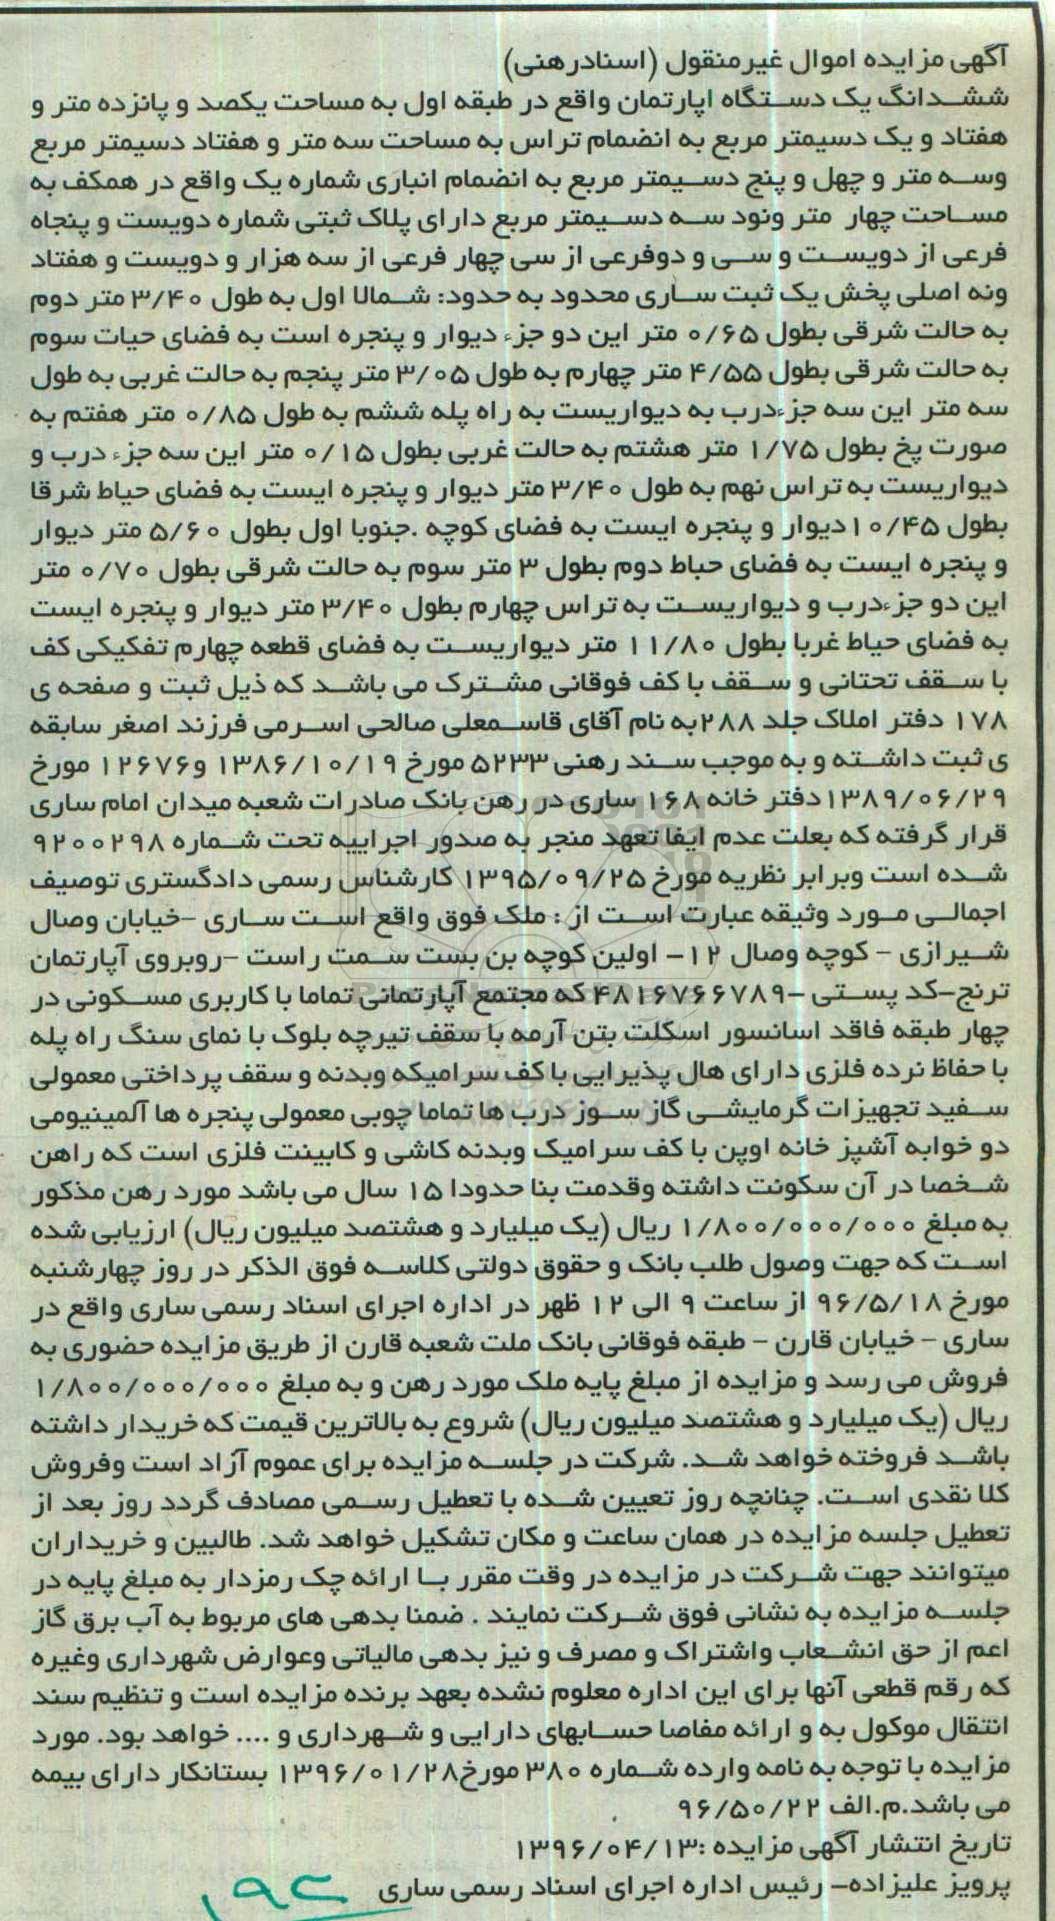 آگهی مزایده اموال غیرمنقول (اسنادرهنی)
ششدانگ یک دستگاه اپارتمان واقع در طبقه اول به مساحت یکصد و پانزده متر و
هفتاد و یک دسیمتر مربع به انضمام تراس به مساحت سه متر و هفتاد دسیمتر مربع
وسه متر و چهل و پنج دسیمتر مربع به انضمام انباری شماره یک واقع در همکف به
مساحت چهار متر ونود سه دسیمتر مربع دارای پلاک ثبتی شماره دویست و پنجاه
فرعی از دویست و سی و دوفرعی از سی چهار فرعی از سه هزار و دویست و هفتاد
ونه اصلی پخش یک ثبت ساری محدود به حدود: شمالا اول به طول ۳/۴۰ متر دوم
به حالت شرقی بطول ۰/۶۵ متر این دو جزء دیوار و پنجره است به فضای حیات سوم
به حالت شرقی بطول ۴/۵۵ متر چهارم به طول ۳/۰۵ متر پنجم به حالت غربی به طول
سه متر این سه جزءدرب به دیواریست به راه پله ششم به طول ۰/۸۵ متر هفتم به
صورت پخ بطول ۱/۷۵ متر هشتم به حالت غربی بطول ۰/۱۵ متر این سه جزء درب و
دیواریست به تراس نهم به طول ۳/۴۰ متر دیوار و پنجره ایست به فضای حیاط شرقا
بطول ۱۰/۴۵دیوار و پنجره ایست به فضای کوچه .جنوبا اول بطول ۵/۶۰ متر دیوار
و پنجره ایست به فضای حباط دوم بطول ۳ متر سوم به حالت شرقی بطول ۰/۷۰ متر
این دو جزءدرب و دیواریست به تراس چهارم بطول ۳/۴۰ متر دیوار و پنجره ایست
به فضای حیاط غربا بطول ۱۱/۸۰ متر دیواریست به فضای قطعه چهارم تفکیکی کف
با سقف تحتانی و سقف با کف فوقانی مشترک می باشد که ذیل ثبت و صفحه ی
۱۷۸ دفتر املاک جلد ۲۸۸به نام آقای قاسمعلی صالحی اسرمی فرزند اصغر سابقه
ی ثبت داشته و به موجب سند رهنی ۵۲۳۳ مورخ ۱۳۸۶/۱۰/۱۹ و۱۲۶۷۶ مورخ
۱۳۸۹/۰۶/۲۹دفتر خانه ۱۶۸ ساری در رهن بانک صادرات شعبه میدان امام ساری
قرار گرفته که بعلت عدم ایفا تعهد منجر به صدور اجراییه تحت شماره ۹۲۰۰۲۹۸
شده است وبرابر نظریه مورخ ۱۳۹۵/۰۹/۲۵ کارشناس رسمی دادگستری توصیف
اجمالی مورد وثیقه عبارت است از : ملک فوق واقع است ساری –خیابان وصال
شیرازی – کوچه وصال ۱۲– اولین کوچه بن بست سمت راست –روبروی آپارتمان
ترنج–کد پستی –۴۸۱۶۷۶۶۷۸۹ که مجتمع آپارتمانی تماما با کاربری مسکونی در
چهار طبقه فاقد اسانسور اسکلت بتن آرمه با سقف تیرچه بلوک با نمای سنگ راه پله
با حفاظ نرده فلزی دارای هال پذیرایی با کف سرامیکه وبدنه و سقف پرداختی معمولی
سفید تجهیزات گرمایشی گاز سوز درب ها تماما چوبی معمولی پنجره ها آلمینیومی
دو خوابه آشپز خانه اوپن با کف سرامیک وبدنه کاشی و کابینت فلزی است که راهن
شخصا در آن سکونت داشته وقدمت بنا حدودا ۱۵ سال می باشد مورد رهن مذکور
به مبلغ ۱/۸۰۰/۰۰۰/۰۰۰ ریال (یک میلیارد و هشتصد میلیون ریال) ارزیابی شده
است که جهت وصول طلب بانک و حقوق دولتی کلاسه فوق الذکر در روز چهارشنبه
مورخ ۹۶/۵/۱۸ از ساعت ۹ الی ۱۲ ظهر در اداره اجرای اسناد رسمی ساری واقع در
ساری – خیابان قارن – طبقه فوقانی بانک ملت شعبه قارن از طریق مزایده حضوری به
فروش می رسد و مزایده از مبلغ پایه ملک مورد رهن و به مبلغ ۱/۸۰۰/۰۰۰/۰۰۰
ریال (یک میلیارد و هشتصد میلیون ریال) شروع به بالاترین قیمت که خریدار داشته
باشد فروخته خواهد شد. شرکت در جلسه مزایده برای عموم آزاد است وفروش
کلا نقدی است. چنانچه روز تعیین شده با تعطیل رسمی مصادف گردد روز بعد از
تعطیل جلسه مزایده در همان ساعت و مکان تشکیل خواهد شد. طالبین و خریداران
میتوانند جهت شرکت در مزایده در وقت مقرر با ارائه چک رمزدار به مبلغ پایه در
جلسه مزایده به نشانی فوق شرکت نمایند . ضمنا بدهی های مربوط به آب برق گاز
اعم از حق انشعاب واشتراک و مصرف و نیز بدهی مالیاتی وعوارض شهرداری وغیره
که رقم قطعی آنها برای این اداره معلوم نشده بعهد برنده مزایده است و تنظیم سند
انتقال موکول به و ارائه مفاصا حسابهای دارایی و شهرداری و .... خواهد بود. مورد
مزایده با توجه به نامه وارده شماره ۳۸۰ مورخ۱۳۹۶/۰۱/۲۸ بستانکار دارای بیمه
می باشد.م.الف ۹۶/۵۰/۲۲
تاریخ انتشار آگهی مزایده :۱۳۹۶/۰۴/۱۳
پرویز علیزاده– رئیس اداره اجرای اسناد رسمی ساری